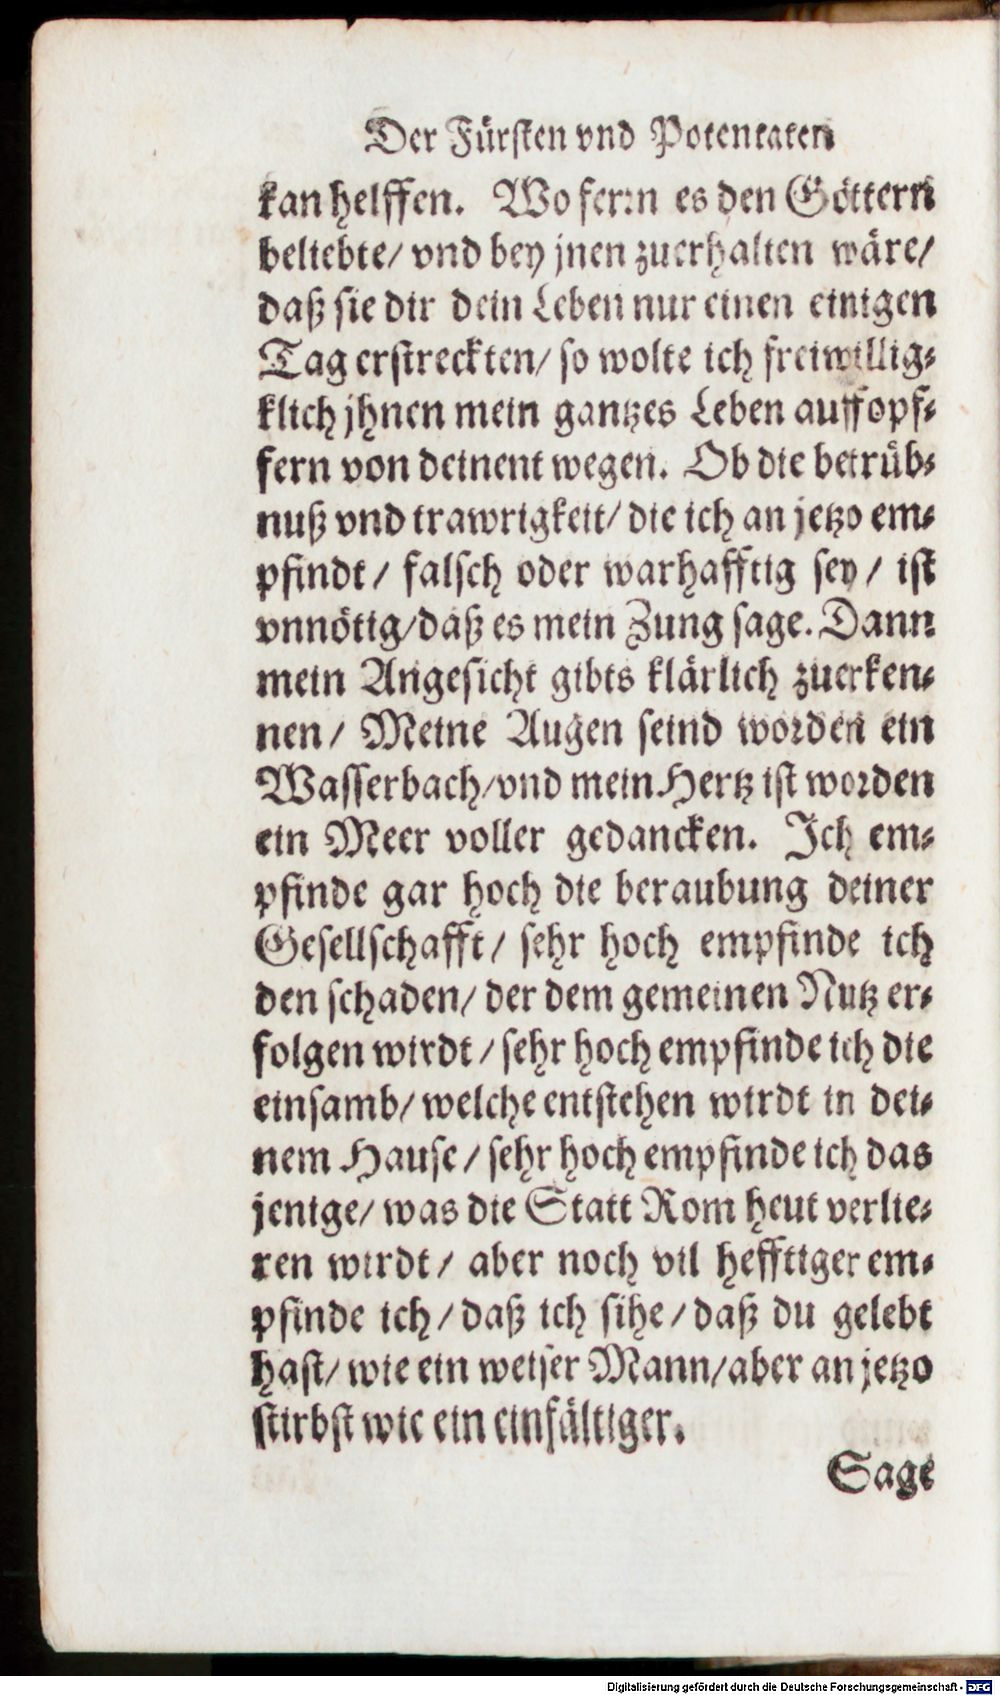 Der Fürsten vnd Potentaten
kan helffen. Wo fern es den Göttern
beliebte/ vnd bey jnen zuerhalten wäre/
daß sie dir dein Leben nur einen einigen
Tag erstreckten/ so wolte ich freiwillig⸗
klich jhnen mein gantzes Leben auffopf⸗
fern von deinent wegen. Ob die betrüb⸗
nuß vnd trawrigkeit/ die ich an jetzo em⸗
pfindt/ falsch oder warhafftig sey/ ist
vnnötig/ daß es mein Zung sage. Dann
mein Angesicht gibts klärlich zuerken⸗
nen/ Meine Augen seind worden ein
Wasserbach/ vnd mein Hertz ist worden
ein Meer voller gedancken. Ich em⸗
pfinde gar hoch die beraubung deiner
Gesellschafft/ sehr hoch empfinde ich
den schaden/ der dem gemeinen Nutz er⸗
folgen wirdt/ sehr hoch empfinde ich die
einsamb/ welche entstehen wirdt in dei⸗
nem Hause/ sehr hoch empfinde ich das
jenige/ was die Statt Rom heut verlie⸗
ren wirdt/ aber noch vil hefftiger em⸗
pfinde ich/ daß ich sihe/ daß du gelebt
hast/ wie ein weiser Mann/ aber an jetzo
stirbst wie ein einfältiger.
Sage
Digitalisierung gefördert durch die Deutsche Forschungsgemeinschaft - DFG